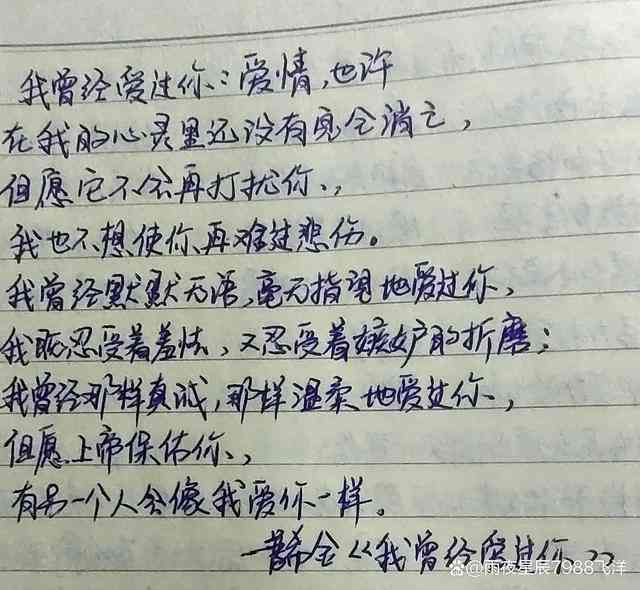 我曾经爱过你：爱情，也许
在我的心灵里还没有完全消亡，
但愿它不会再打扰你，
我也不想使你再难过悲伤。
我曾经默默无语，毫无指望地爱过你，
我既忍受着羞怯，又忍受着嫉妒的折磨；
我曾经那样真诚，那样温柔地爱过你，
但愿上帝保佑你，
有另一个人会像我爱你一样。
—普希金《我曾经爱过你》
雨夜星辰7988飞洋